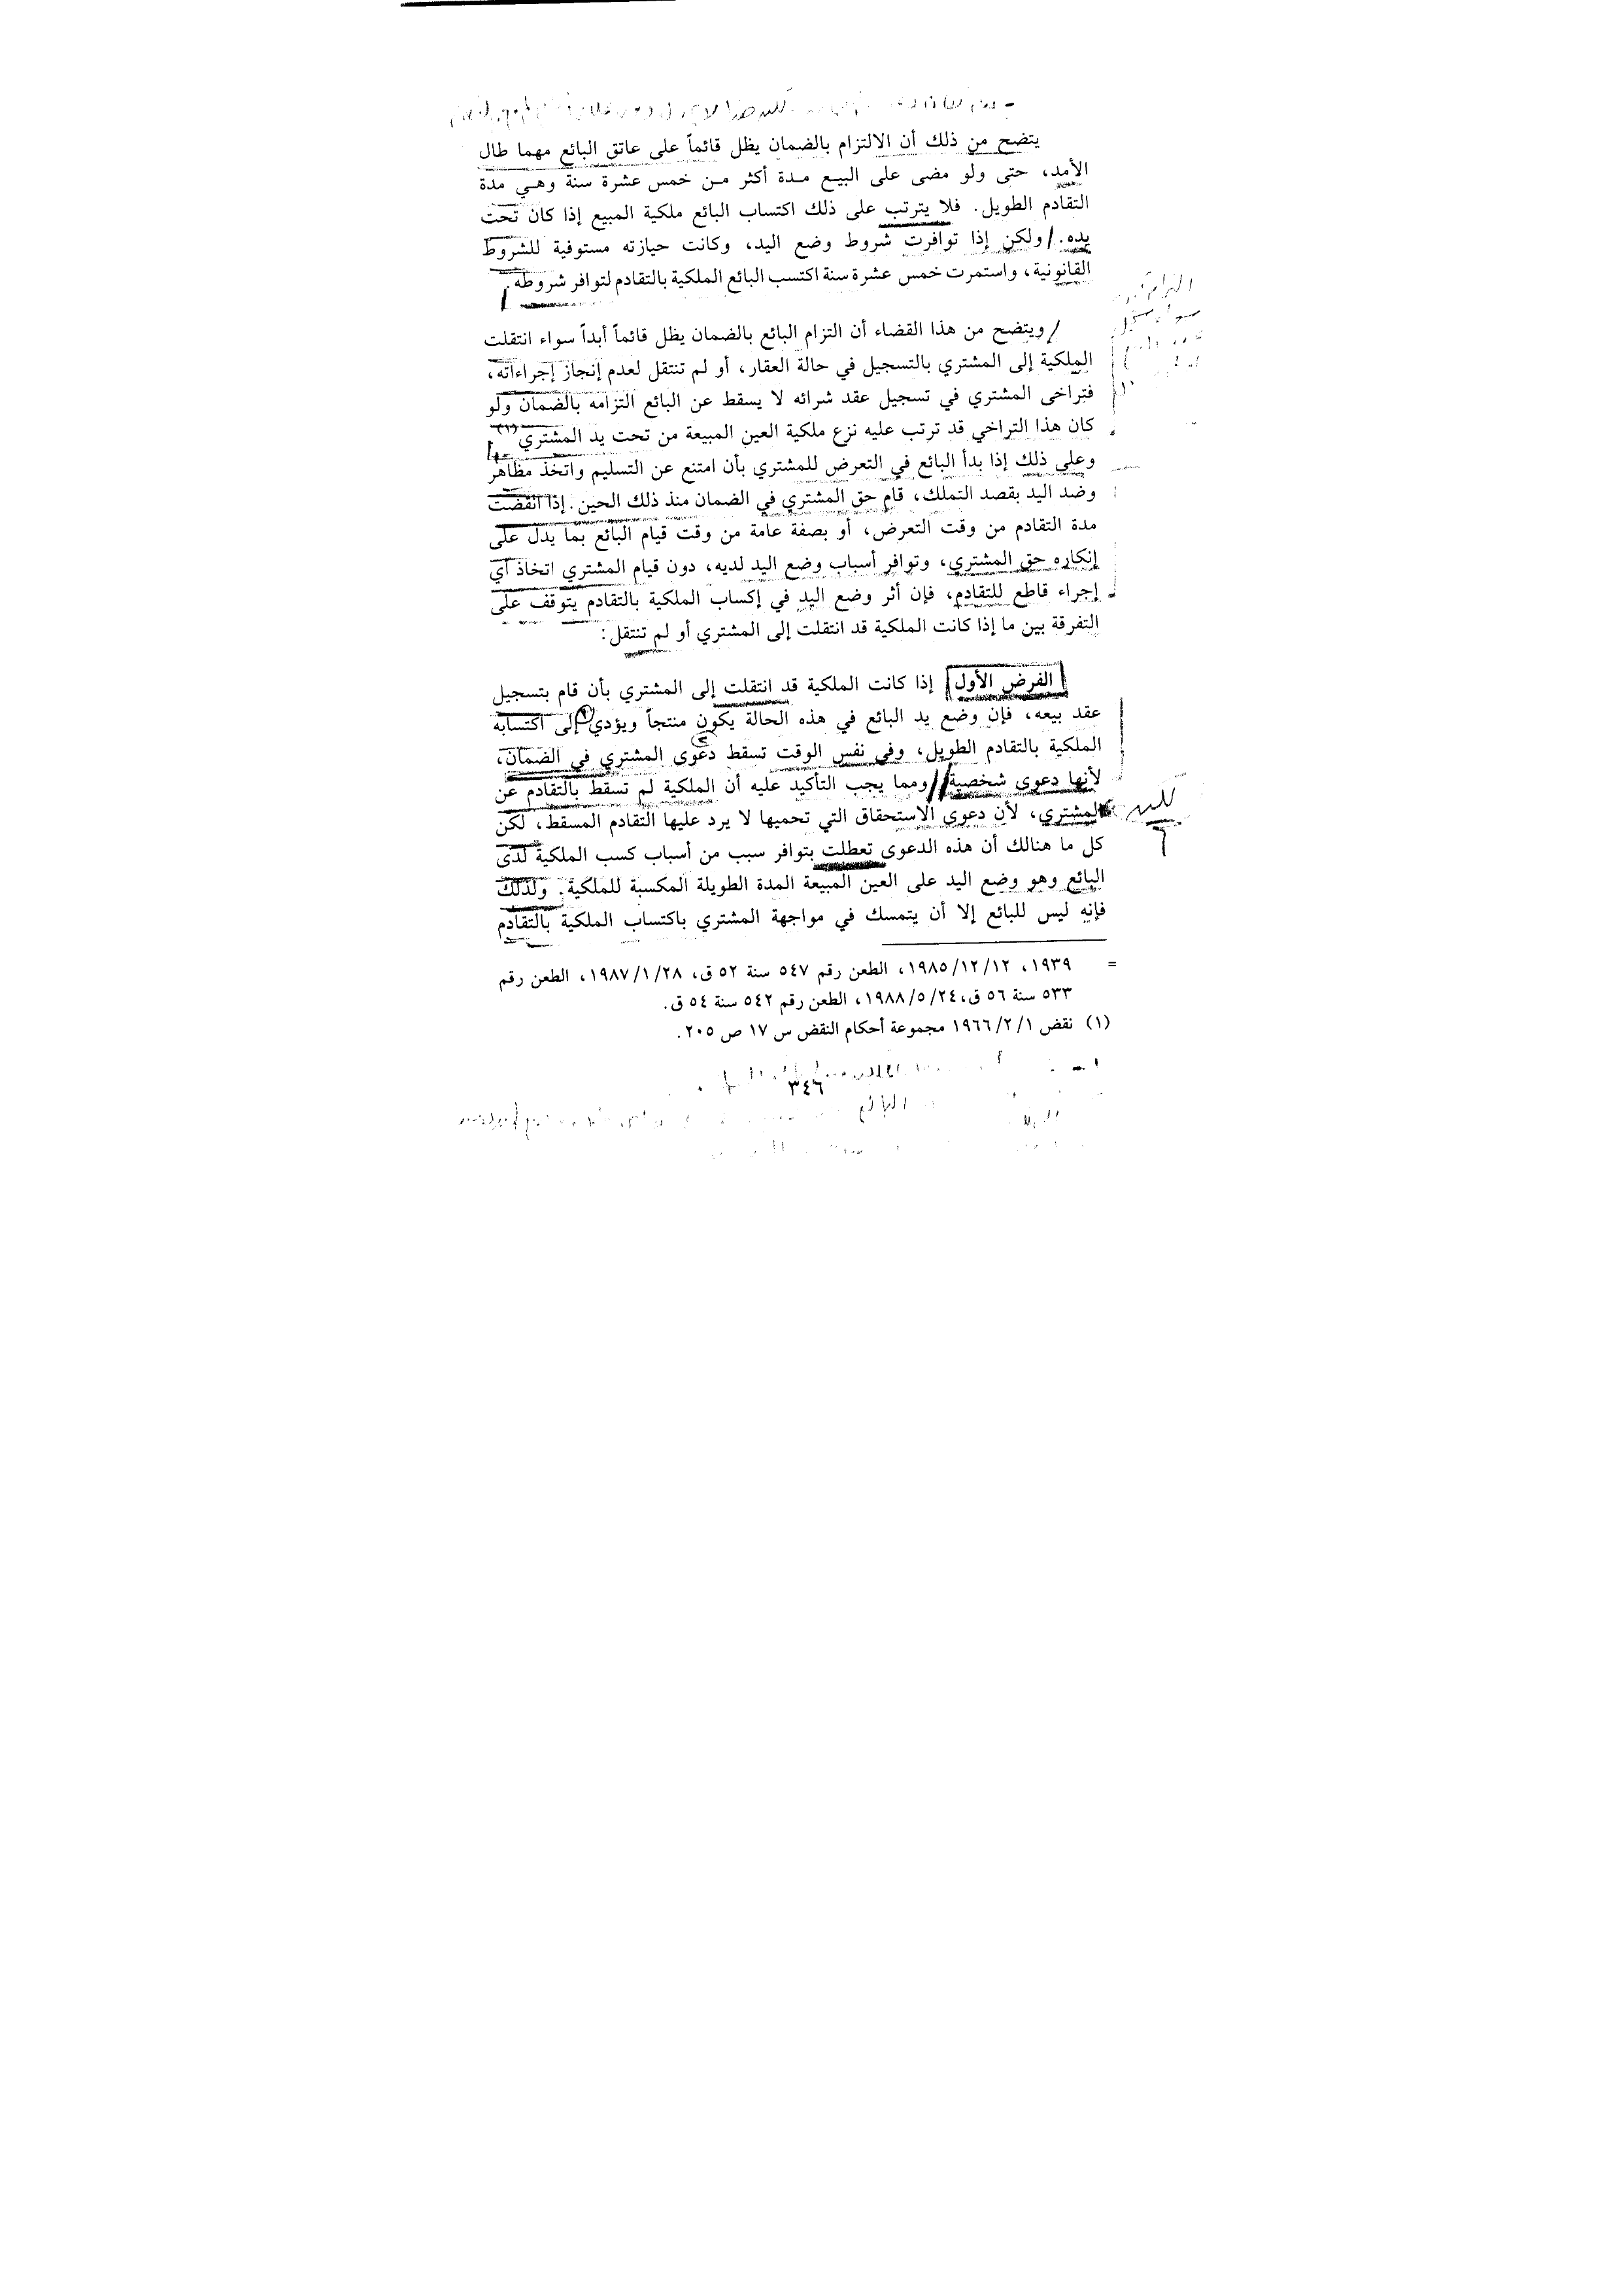 يتضح من ذلك أن الالتزام بالضمان يظل قائماً على عاتق البائع مهما طال
الأمد، حتى ولو مضى على البيع مدة أكثر من خمس عشرة سنة وهي مدة
التقادم الطويل. فلا يترتب على ذلك اكتساب البائع ملكية المبيع إذا كان تحت
يده. ولكن إذا توافرت شروط وضع اليد، وكانت حيازته مستوفية للشروط
القانونية، واستمرت خمس عشرة سنة اكتسب البائع الملكية بالتقادم لتوافر شروطه.
ويتضح من هذا القضاء أن التزام البائع بالضمان يظل قائماً أبداً سواء انتقلت
الملكية إلى المشتري بالتسجيل في حالة العقار، أو لم تنتقل لعدم إنجاز إجراءاته،
فتراخى المشتري في تسجيل عقد شرائه لا يسقط عن البائع التزامه بالضمان ولو
كان هذا التراخي قد ترتب عليه نزع ملكية العين المبيعة من تحت يد المشتري(١)
وعلى ذلك إذا بدأ البائع في التعرض للمشتري بأن امتنع عن التسليم واتخذ مظاهر
وضد اليد بقصد التملك، قام حق المشتري في الضمان منذ ذلك الحين. إذا انقضت
مدة التقادم من وقت التعرض، أو بصفة عامة من وقت قيام البائع بما يدل على
إنكاره حق المشتري، وتوافر أسباب وضع اليد لديه، دون قيام المشتري اتخاذ أي
إجراء قاطع للتقادم، فإن أثر وضع اليد في إكساب الملكية بالتقادم يتوقف على
التفرقة بين ما إذا كانت الملكية قد انتقلت إلى المشتري أو لم تنتقل:
الفرض الأول إذا كانت الملكية قد انتقلت إلى المشتري بأن قام بتسجيل
عقد بيعه، فإن وضع يد البائع في هذه الحالة يكون منتجاً ويؤدي إلى اكتسابه
الملكية بالتقادم الطويل، وفي نفس الوقت تسقط دعوى المشتري في الضمان،
لأنها دعوى شخصية ومما يجب التأكيد عليه أن الملكية لم تسقط بالتقادم عن
المشتري، لأن دعوى الاستحقاق التي تحميها لا يرد عليها التقادم المسقط، لكن
كل ما هنالك أن هذه الدعوى تعطلت بتوافر سبب من أسباب كسب الملكية لدى
البائع وهو وضع اليد على العين المبيعة المدة الطويلة المكسبة للملكية. ولذلك
فإنه ليس للبائع إلا أن يتمسك في مواجهة المشتري باكتساب الملكية بالتقادم
= ١٩٣٩، ١٩٨٥/١٢/١٢، الطعن رقم ٥٤٧ سنة ٥٢ ق، ١٩٨٧/١/٢٨، الطعن رقم
٥٣٣ سنة ٥٦ ق، ١٩٨٨/٥/٢٤، الطعن رقم ٥٤٢ سنة ٥٤ ق.
(١) نقض ١٩٦٦/٢/١ مجموعة أحكام النقض س ١٧ ص ٢٠٥.
٣٤٦